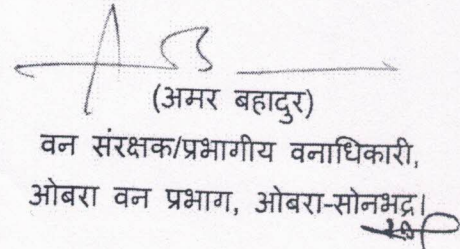 (अमर बहादुर)
वन संरक्षक/प्रभागीय वनाधिकारी,
ओबरा वन प्रभाग, ओबरा-सोनभद्र।